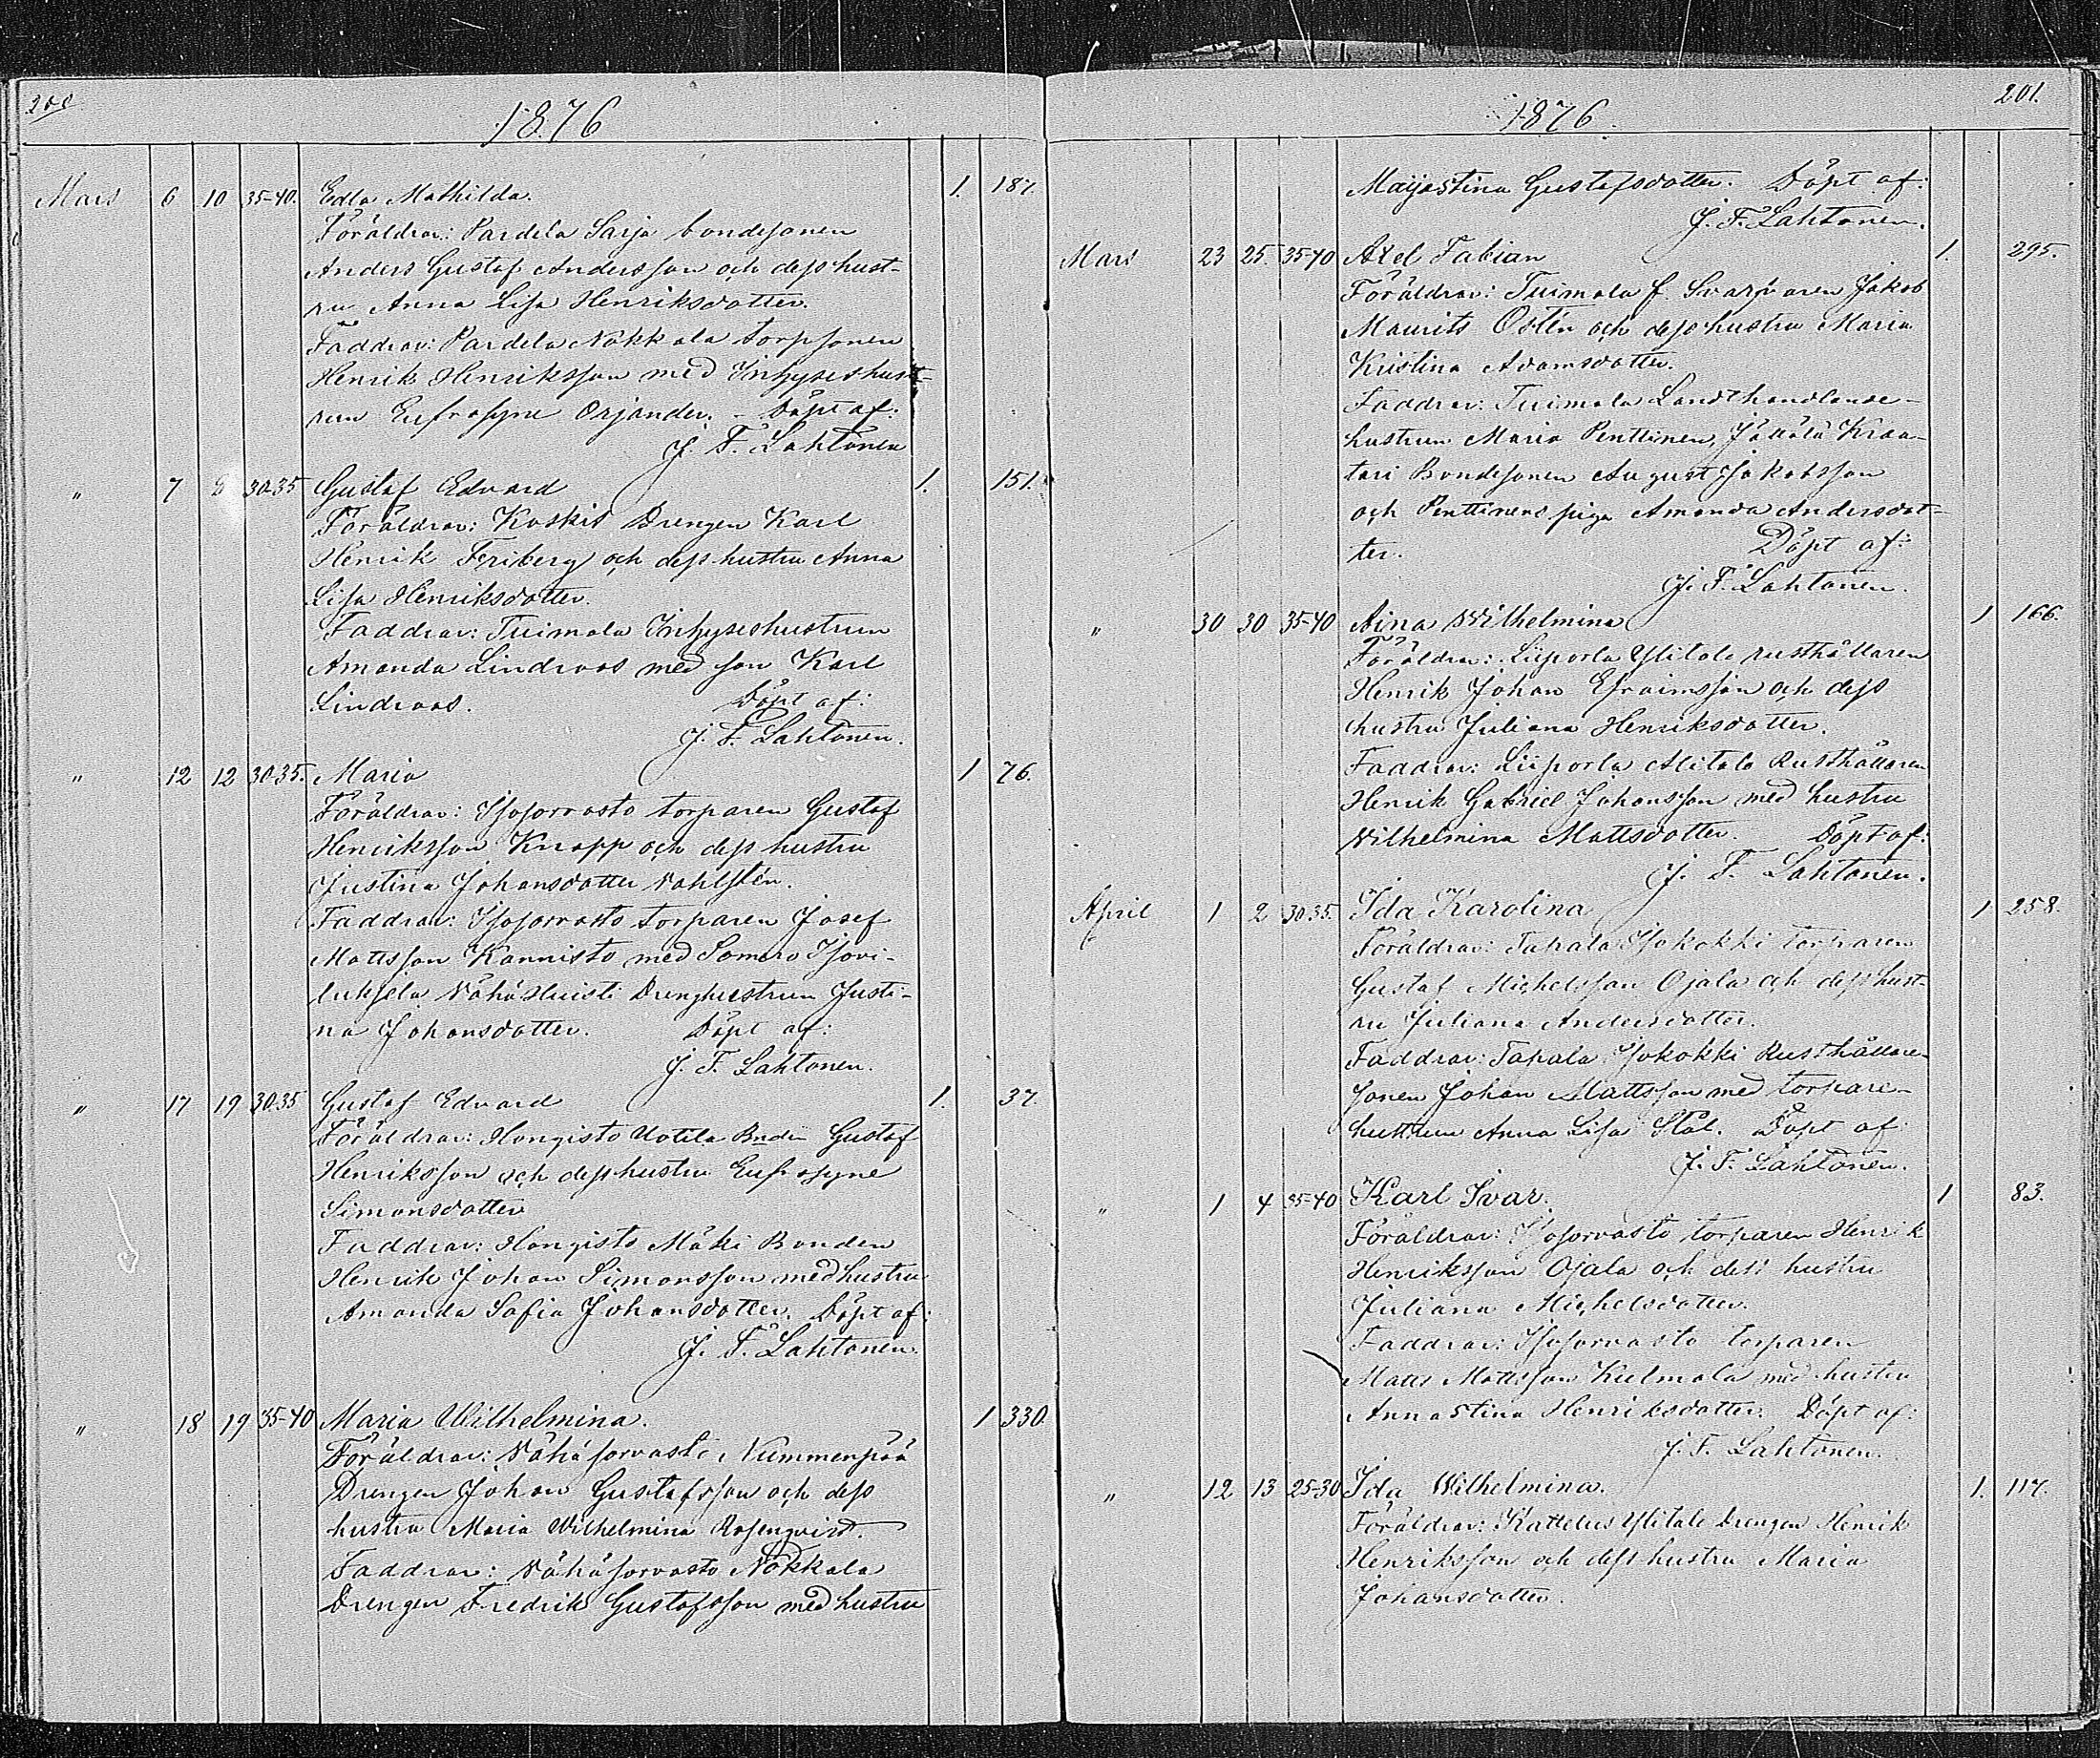 200
1876
Mars 6 10 35-40. Edla Mathilda. 1. 187.
Föräldrar: Pardela Sarja bondesonen
Anders Gustaf Andersson och dess hust-
ru Anna Lisa Henriksdotter.
Faddrar: Pardela Näkkala torpsonen
Henrik Henriksson med Inhyseshust-
run Eufrosyne Orjander. - Döpt af:
J. F. Lahtonen
" 7 8 30-35 Gustaf Edvard 1. 151.
Föräldrar: Koskis Drengen Karl
Henrik Friberg och dess hustru Anna
Lisa Henriksdotter.
Faddrar: Tuimala Inhyseshustrun
Amanda Lindroos med son Karl
Lindroos. Döpt af:
J. F. Lahtonen.
" 12 12 30-35. Maria 1 76.
Föräldrar: Isosorvasto torparen Gustaf
Henriksson Knapp och dess hustru
Justina Johansdotter Vahlstén.
Faddrar: Isosorvasto torparen Josef
Mattsson Kannisto med Somero Isovi-
luksela Vähäsluisti Drenghustrun Justi-
na Johansdotter. Döpt af:
J. F. Lahtonen.
" 17 19 30-35 Gustaf Edvard 1. 37.
Föräldrar: Hongisto Uotila Bnden Gustaf
Henriksson och dess hustru Eufrosyne
Simonsdotter
Faddrar: Hongisto Mäki Bonden
Henrik Johan Simonsson med hustru
Amanda Sofia Johansdotter. Döpt af:
J. F. Lahtonen.
" 18 19 35-40 Maria Wilhelmina. 1 330.
Föräldrar: Vähäsorvasto Nummenpää
Drengen Johan Gustafsson och dess
hustru Maria Wilhelmina Rosenqvist.
Faddrar: Vähäsorvasto Näkkala
Drengen Fredrik Gustafsson med hustru
201.
1876
Majastina Gustafsdotter. Döpt af:
J. F. Lahtonen.
Mars 23 25. 35-40 Axel Fabian 1. 295.
Föräldrar: Tuimala f. Svarfvaren Jakob
Maurits Östén och dess hustru Maria
Kristina Adamsdotter.
Faddrar: Tuimala Landthandlande-
hustrun Maria Penttinen, Jättälä Kraa-
tari Bondesonen August Jakobsson
och Penttinens piga Amanda Andersdot-
ter. Döpt af:
J. F. Lahtonen.
" 30 30 35-40 Aina Wilhelmina 1 166.
Föräldrar: Liiporla Ylitalo rusthållaren
Henrik Johan Efraimsson och dess
hustru Juliana Henriksdotter.
Faddrar: Liiporla Alitalo Rusthållaren
Henrik Gabriel Johansson med hustru
Wilhelmina Mattsdotter. Döpt af:
J. F. Lahtonen.
April 1 2 30-35. Ida Karolina 1 258.
Föräldrar: Tapala Isokokki torparen
Gustaf Michelsson Ojala och dess hust-
ru Juliana Andersdotter.
Faddrar: Tapala Isokokki Rusthållare-
sonen Johan Mattsson med torpare-
hustrun Anna Lisa Stål. Döpt af
J. F. Lahtonen.
" 1 4 35-40 Karl Ivar. 1 83.
Föräldrar: Isosorvasto torparen Henrik
Henriksson Ojala och dess hustru
Juliana Michelsdotter.
Faddrar: Isosorvasto torparen
Matts Mattsson Kulmala med hustru
Annastina Henriksdotter. Döpt af:
J. F. Lahtonen.
" 12 13 25-30 Ida Wilhelmina. 1. 117.
Föräldrar: Kattelus Ylitalo Drengen Henrik
Henriksson och dess hustru Maria
Johansdotter.